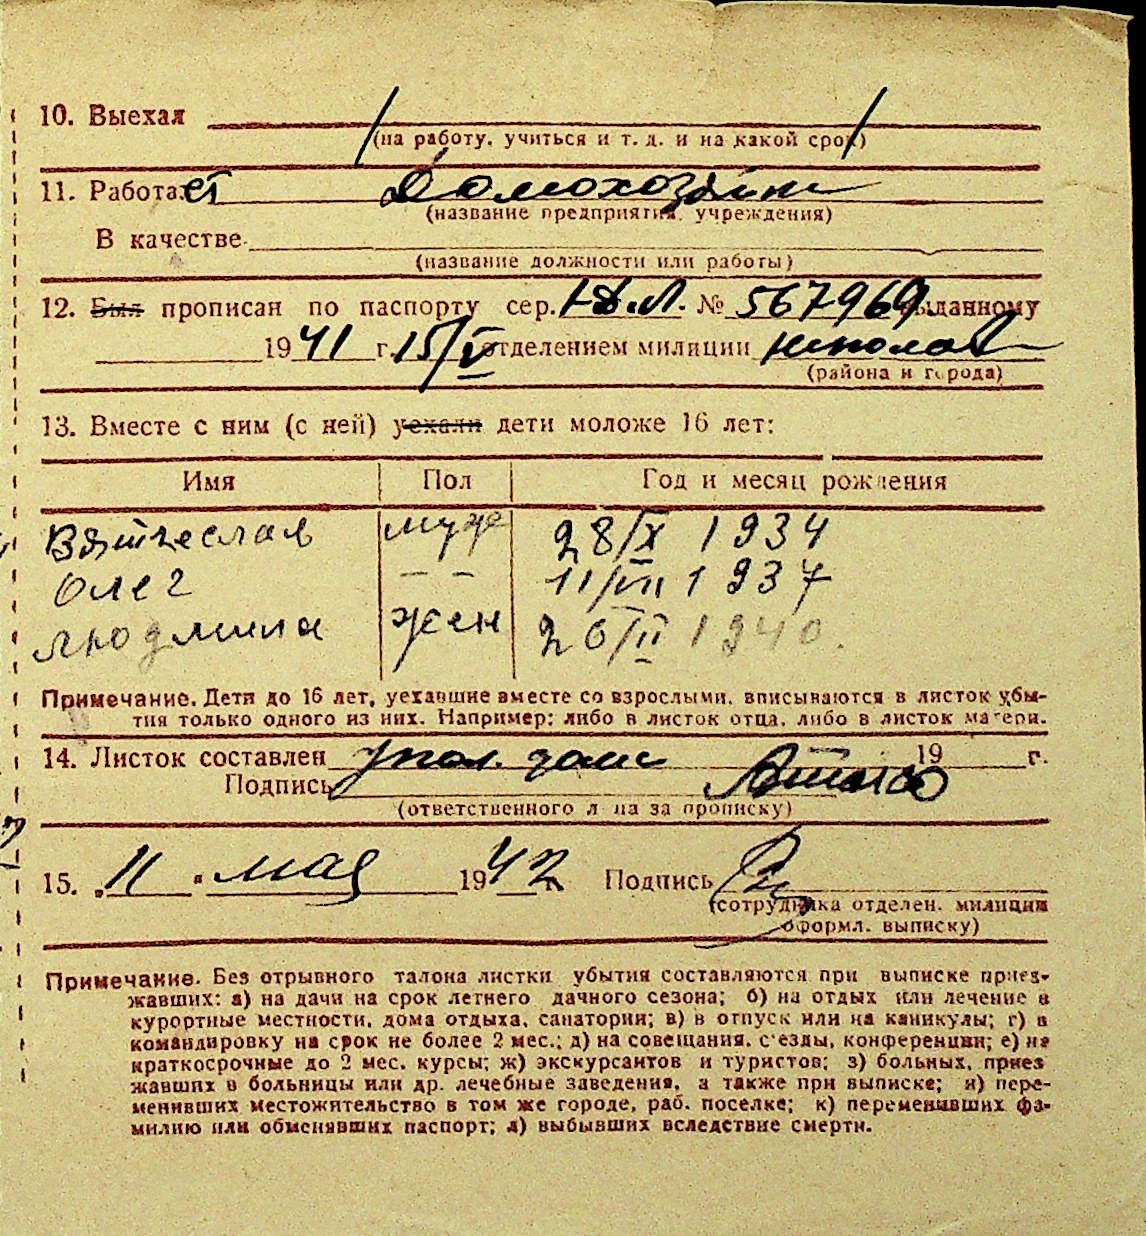 10. Выехал
(на работу, учиться и т. д. и на какой срок)
11. Работает Домохозяйк
(название предприятия, учреждения)
В качестве
(название должности или работы)
12. Был прописан по паспорту сер. № 567969 выданному
1941 г. 15/V отделением милиции
(района и города)
13. Вместе с ним (с ней) уехали дети моложе 16 лет:
Имя Пол Год и месяц рождения
Вятчеслав муж 28/IX 1934
Олег – – 11/VII 1937
Людмила жен 26/II 1940.
Примечание. Дети до 16 лет, уехавшие вместе со взрослыми, вписываются в листок убы-
тия только одного из них. Например: либо в листок отца, либо в листок матери.
14. Листок составлен упол. дом 19 г.
Подпись
(ответственного лица за прописку)
15. „11" мая 1942 Подпись
(сотрудника отделен. милиции
оформл. выписку)
Примечание. Без отрывного талона листки убытия составляются при выписке приез-
жавших: а) на дачи на срок летнего дачного сезона; б) на отдых или лечение в
курортные местности, дома отдыха, санатории; в) в отпуск или на каникулы; г) в
командировку на срок не более 2 мес.; д) на совещания, с'езды, конференции; е) на
краткосрочные до 2 мес. курсы; ж) экскурсантов и туристов; з) больных, приез
жавших в больницы или др. лечебные заведения, а также при выписке; и) пере-
менивших местожительство в том же городе, раб. поселке; к) переменивших фа-
милию или обменявших паспорт; л) выбывших вследствие смерти.